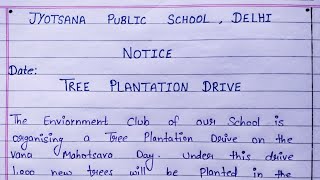 JYOTSANA PUBLIC SCHOOL, DELHI
NOTICE
Date:
TREE PLANTATION DRIVE
The Enviornment Club of our School is
organising a Tree Plantation Drive on the
Vana Mahotsava Day. Under this drive
1,000 new trees will be Planted in the